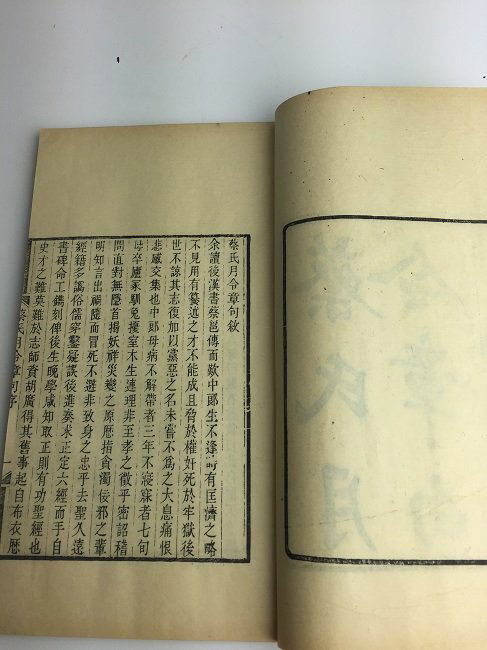 蔡氏月令章句敘
余讀後漢書蔡邕傳而歎中郎生不逢時有匡濟之略
不見用有纂述之才不能成且脅於權奸死於牢獄後
世不諒其志復加以黨惡之名未嘗不為之太息痛恨
悲感交集也中郎母病不解帶者三年不寢寐者七旬
母卒廬冢馴兔擾室木生連理非至孝之徵乎密詔稽
問直對無隱首揚妖祥災變之原歷指貪濁佞邪之輩
明知言出禍隨而冒死不避非致身之忠乎去聖久遠
經籍多譌俗儒穿鑿疑誤後進奏求正定六經而手自
書碑命工鐫刻俾後生晚學咸知取正則有功聖經也
史才之難莫難於志師資胡廣得其舊事起自布衣歷
蔡氏月令章句序
一
蔡氏月